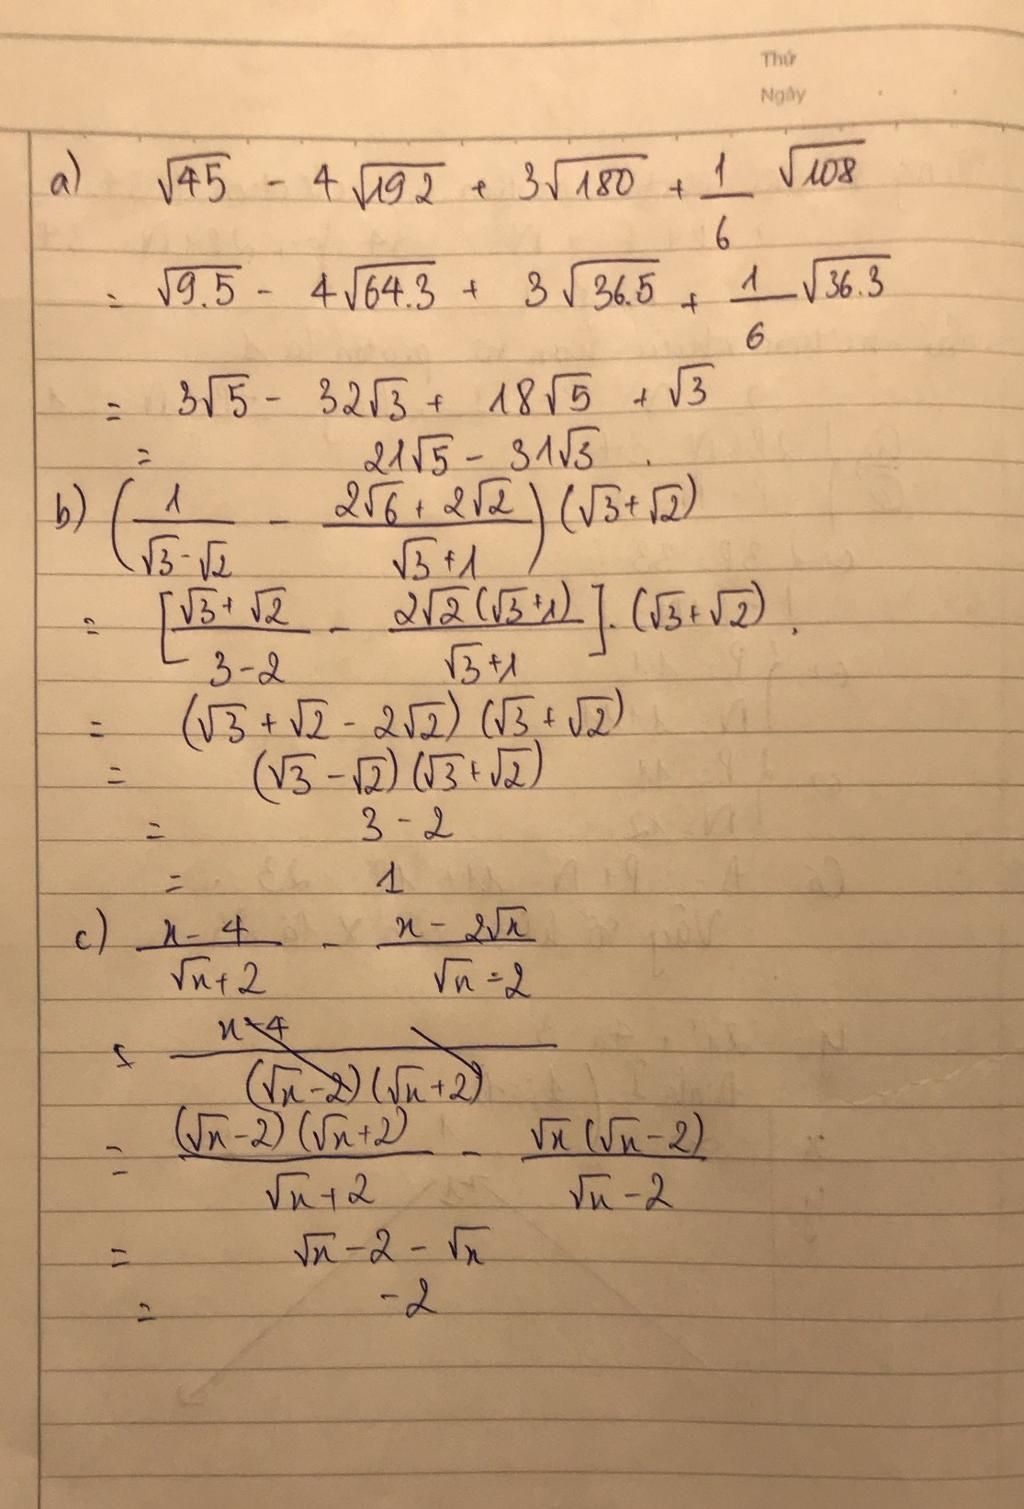 Thứ
Ngày
a) √45 - 4√192 + 3√180 + 1/6 √108
= √9.5 - 4√64.3 + 3√36.5 + 1/6 √36.3
= 3√5 - 32√3 + 18√5 + √3
= 21√5 - 31√3 .
b) (1/(√3-√2) - (2√6 + 2√2)/(√3+1)) (√3+√2)
= [(√3+√2)/(3-2) - 2√2(√3+1)/(√3+1)] . (√3+√2) .
= (√3 + √2 - 2√2) (√3 + √2)
= (√3 - √2) (√3 + √2)
= 3 - 2
= 1
c) (x-4)/(√x+2) - (x-2√x)/(√x-2)
= (x-4)/((√x-2)(√x+2))
= (√x-2)(√x+2)/(√x+2) - √x(√x-2)/(√x-2)
= √x - 2 - √x
= -2